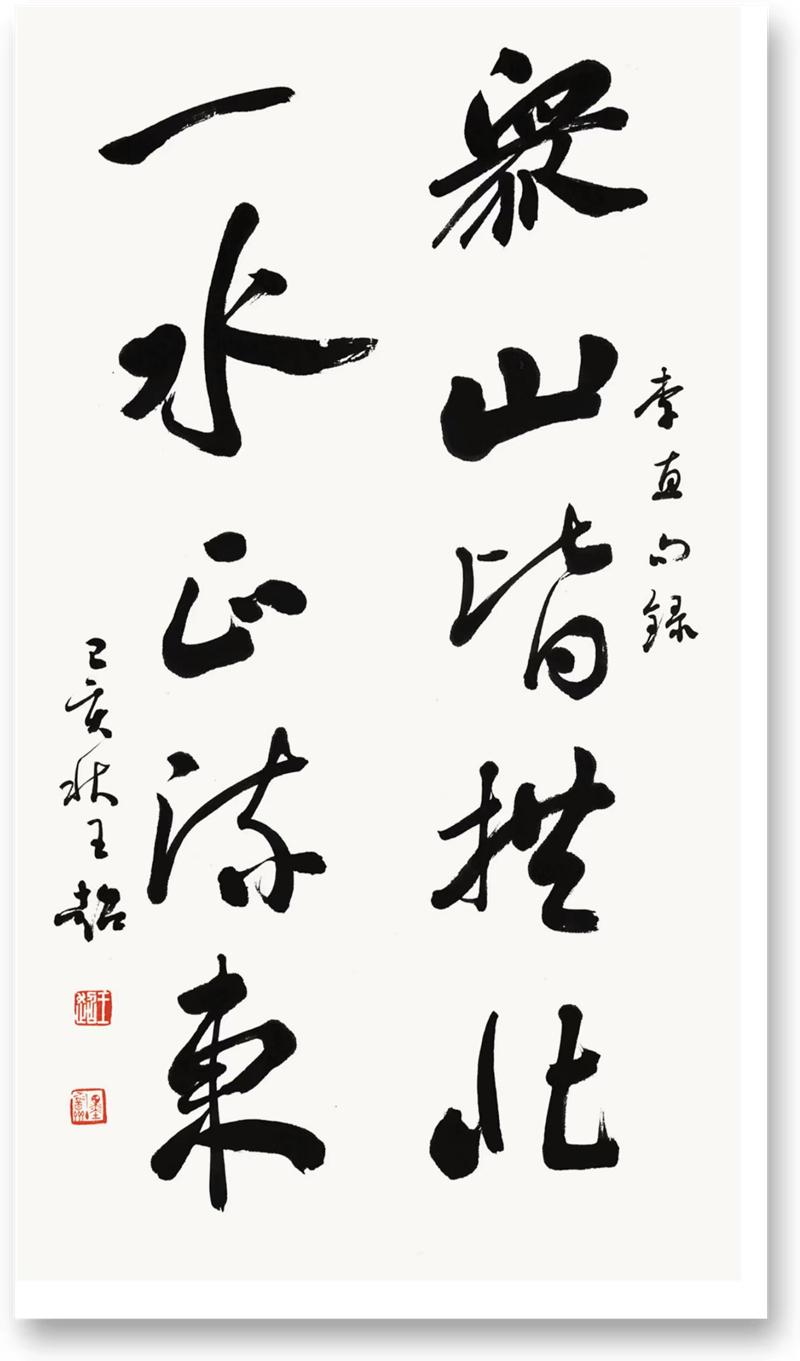 眾山皆拱北
李直句錄
一水正流東
己亥秋王超
王超